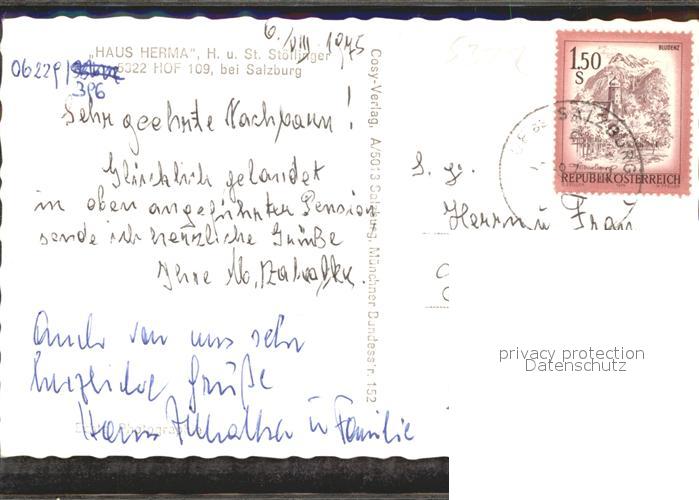 6. VIII. 1975
„HAUS HERMA“, H. u. St. Stöllinger
5322 HOF 109, bei Salzburg
06229/
396
Sehr geehrte Nachbarn!
Glücklich gelandet
in oben angeführter Pension
sende ich herzliche Grüße
Ihre M.
Auch von uns sehr
herzliche Grüße
Hans u Familie
Cosy-Verlag, A/5013 Salzburg, Münchner Bundesstr. 152
BLUDENZ
1.50
S
REPUBLIK ÖSTERREICH
SALZBURG
S. g.
Herrn u Frau
privacy protection
Datenschutz